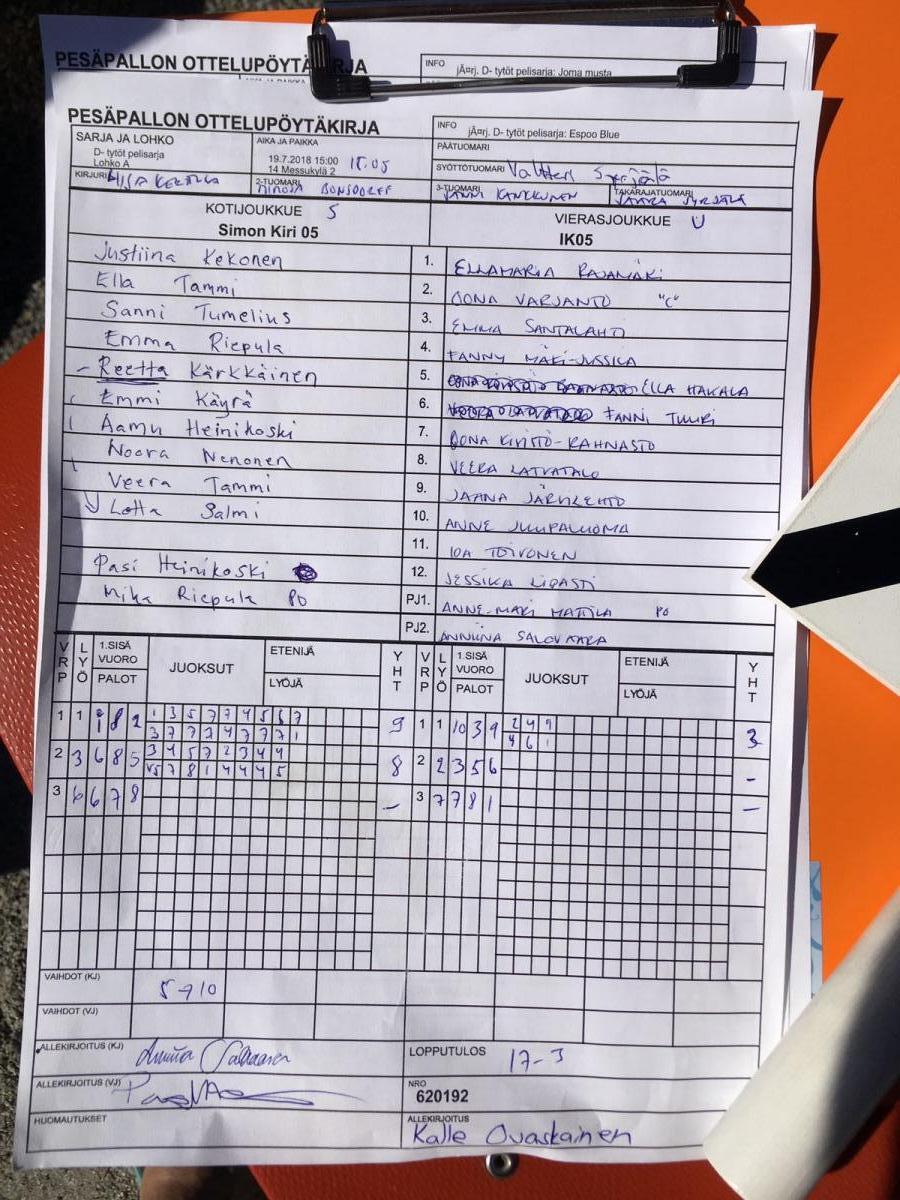 PESÄPALLON OTTELUPÖYTÄKIRJA
INFO jÃ¤rj. D- tytöt pelisarja: Joma musta
PESÄPALLON OTTELUPÖYTÄKIRJA
INFO jÃ¤rj. D- tytöt pelisarja: Espoo Blue
SARJA JA LOHKO
D- tytöt pelisarja
Lohko A
AIKA JA PAIKKA
19.7.2018 15:00 15.05
14 Messukylä 2
PÄÄTUOMARI
SYÖTTÖTUOMARI Valtteri Syrjälä
KIRJURI
2-TUOMARI BONSDORFF
3-TUOMARI JANNI KANKKUNEN
TAKARAJATUOMARI JAAKKO SYRJÄLÄ
KOTIJOUKKUE S
Simon Kiri 05
VIERASJOUKKUE U
IK05
Justiina Kekonen 1. ELLAMARIA RAJAMÄKI
Ella Tammi 2. OONA VARJANTO "C"
Sanni Tumelius 3. EMMA SANTALAHTI
Emma Riepula 4. FANNY MÄKI-JUSSILA
- Reetta Kärkkäinen 5. ELLA HAKALA
Emmi Käyrä 6. FANNI TUURI
Aamu Heinikoski 7. OONA KIVISTÖ-RAHNASTO
Noora Nenonen 8. VEERA LATVATALO
Veera Tammi 9. JAANA JÄRVILEHTO
Lotta Salmi 10. ANNE JUUPALUOMA
11. IDA TOIVONEN
Pasi Heinikoski 12. JESSIKA LIPASTI
Mika Riepula PO PJ1. ANNE-MARI MATTILA PO
PJ2. ANNIINA SALOVAARA
VRP LYÖ 1.SISÄ VUORO PALOT JUOKSUT ETENIJÄ LYÖJÄ YHT VRP LYÖ 1.SISÄ VUORO PALOT JUOKSUT ETENIJÄ LYÖJÄ YHT
1 1 1 8 2 1 3 5 7 7 4 5 6 7 9 1 1 10 3 9 2 4 9 3
3 7 7 2 4 7 7 7 1 4 6 1
2 3 6 8 5 3 4 5 7 2 3 4 4 8 2 2 3 5 6 -
V5 7 8 1 4 4 4 5
3 6 6 7 8 - 3 7 7 8 1 -
VAIHDOT (KJ) 5-10
VAIHDOT (VJ)
ALLEKIRJOITUS (KJ)
LOPPUTULOS 17-3
ALLEKIRJOITUS (VJ)
NRO
620192
HUOMAUTUKSET
ALLEKIRJOITUS
Kalle Ovaskainen